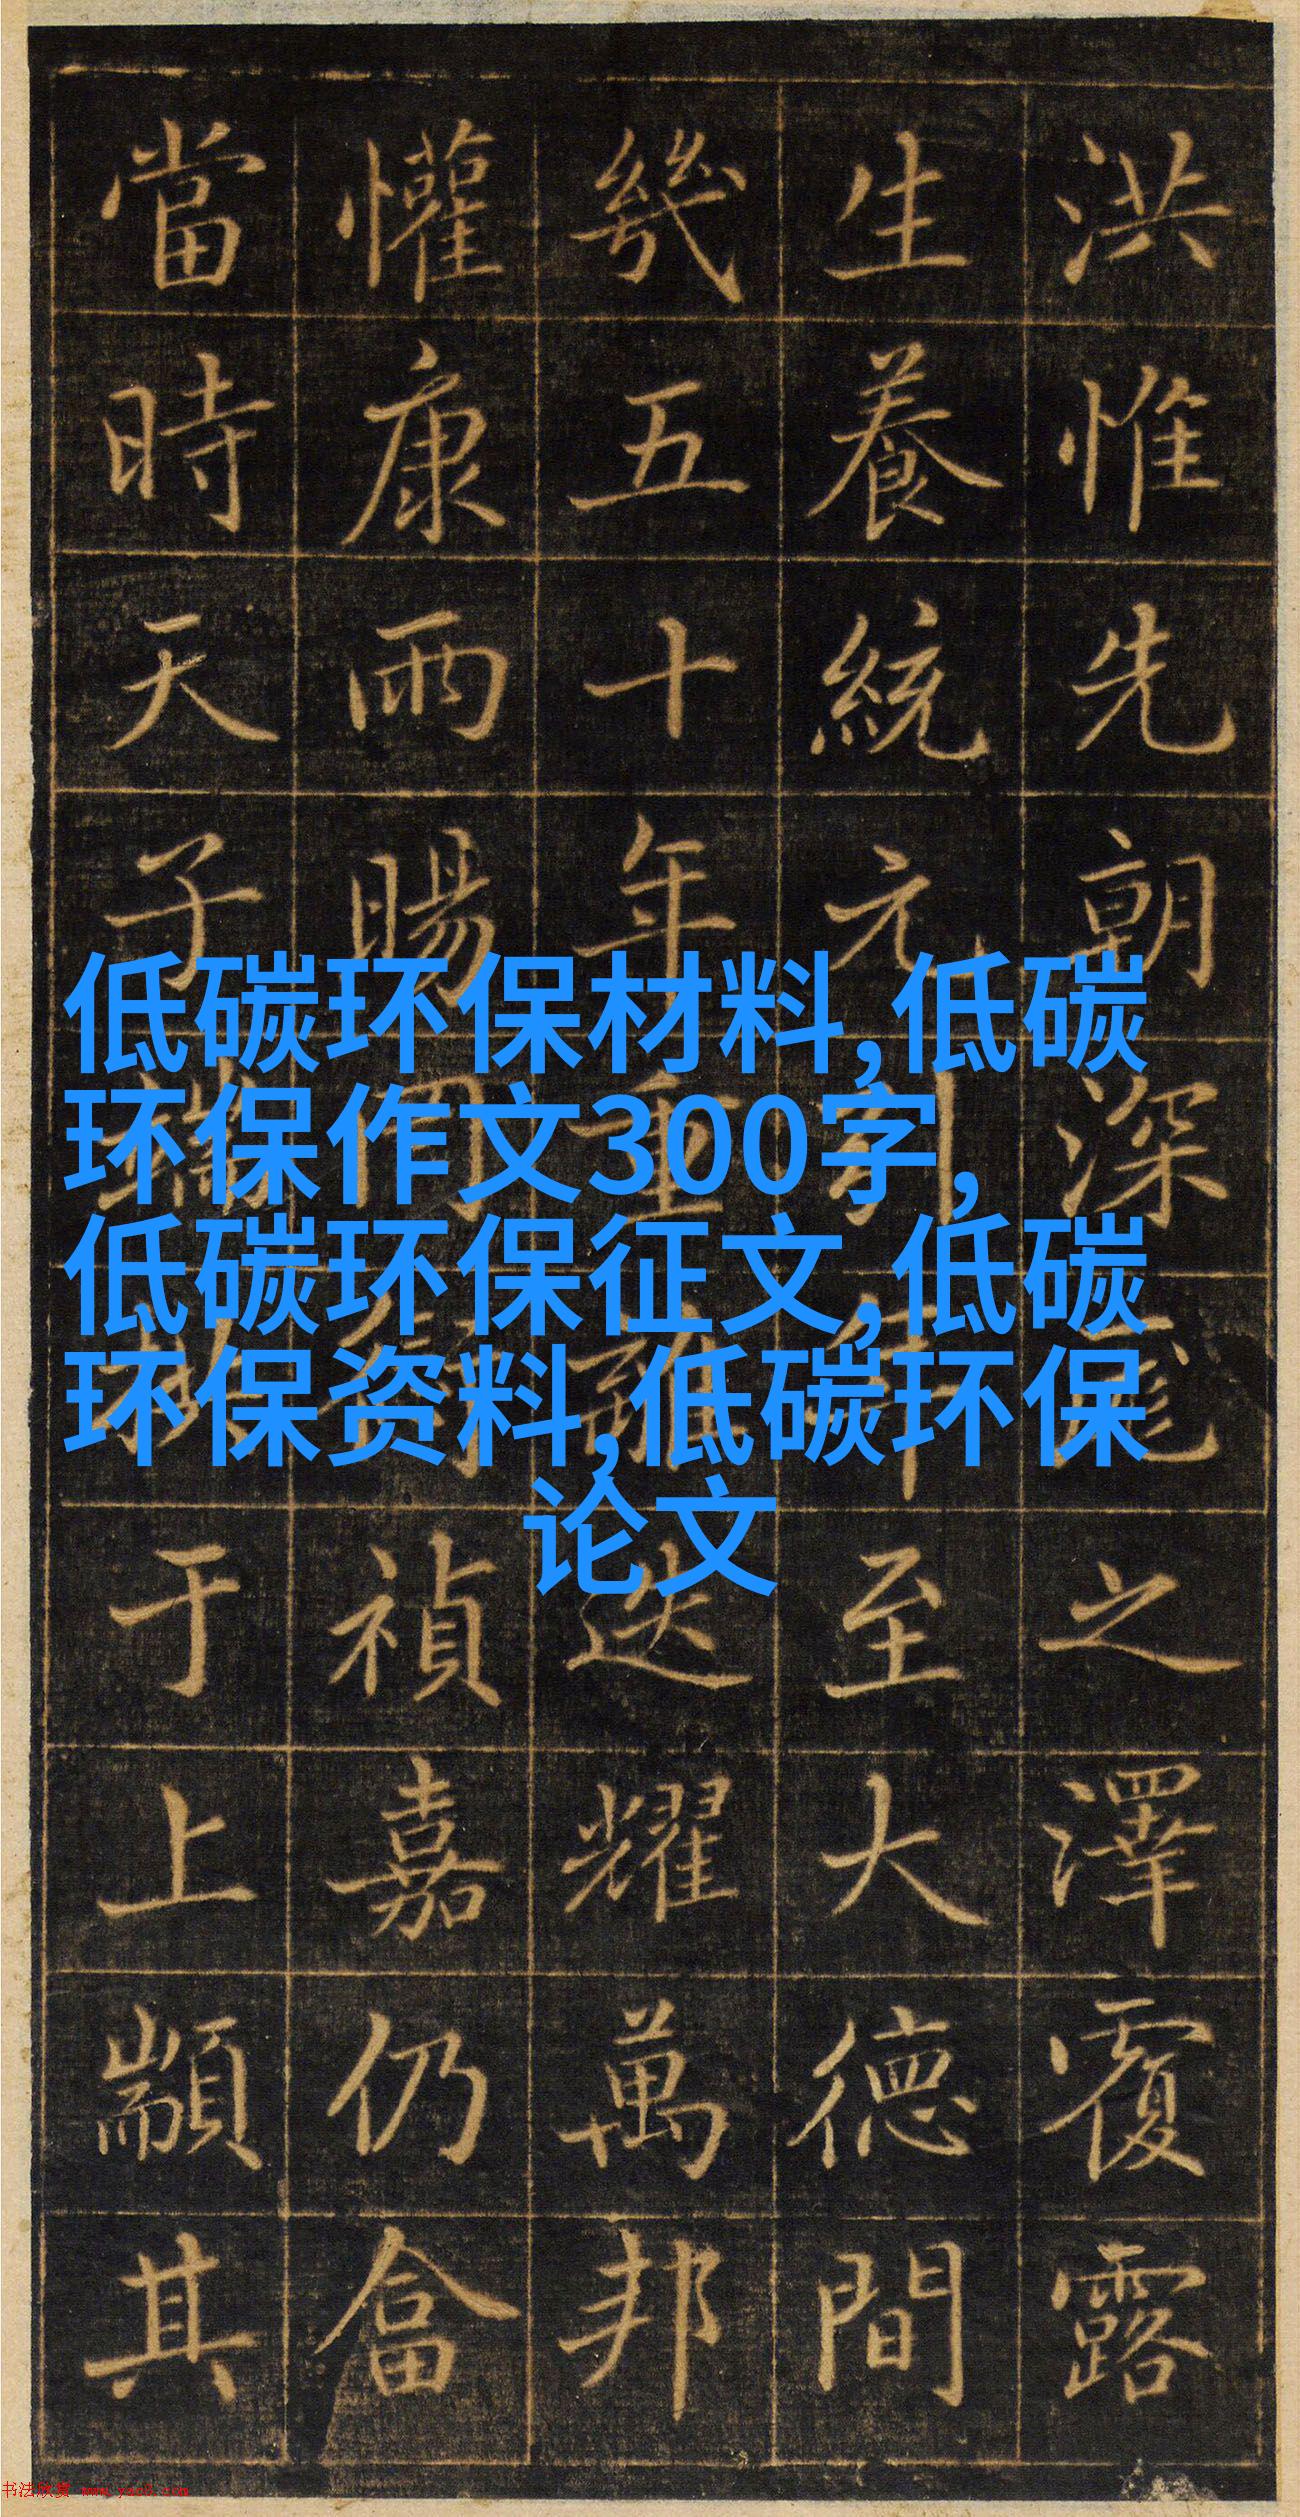 洪惟先朝深之澤覆露
生養統元至大德間
幾五十年重離迭耀萬邦
懽康雨暘禎嘉仍畣
當時天子端拱于上顒其
低碳环保材料,低碳
环保作文300字,
低碳环保征文,低碳
环保资料,低碳环保
论文
书法欣赏 www.yac8.com